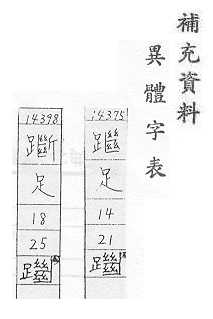 補充資料
異體字表
14375
足
14
21
14398
躖
足
18
25